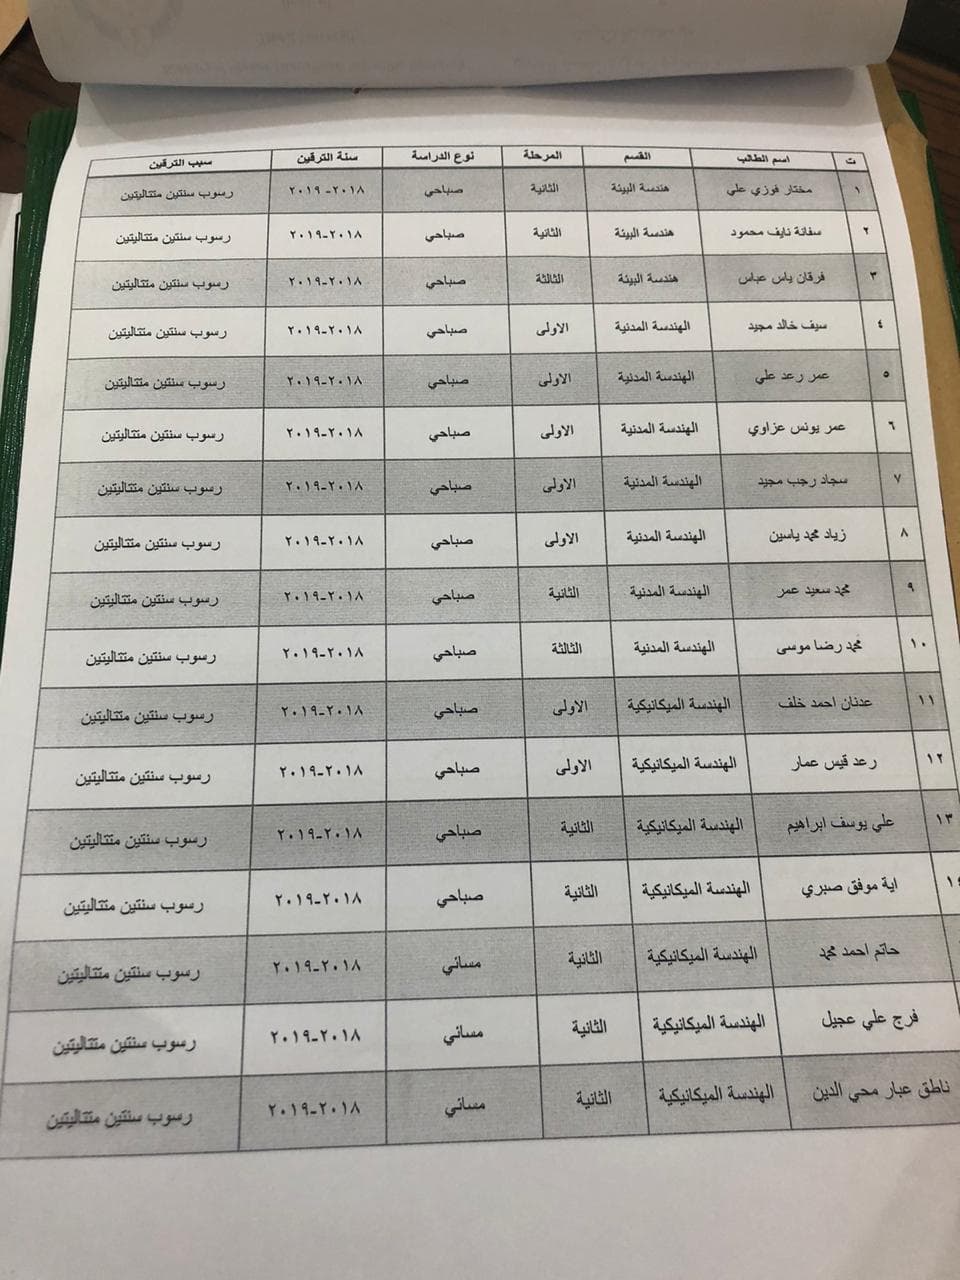 ت اسم الطالب القسم المرحلة نوع الدراسة سنة الترقين سبب الترقين
١ مختار فوزي علي هندسة البيئة الثانية صباحي ٢٠١٨-٢٠١٩ رسوب سنتين متتاليتين
٢ سفانة نايف محمود هندسة البيئة الثانية صباحي ٢٠١٨-٢٠١٩ رسوب سنتين متتاليتين
٣ فرقان ياس عباس هندسة البيئة الثالثة صباحي ٢٠١٨-٢٠١٩ رسوب سنتين متتاليتين
٤ سيف خالد مجيد الهندسة المدنية الاولى صباحي ٢٠١٨-٢٠١٩ رسوب سنتين متتاليتين
٥ عمر رعد علي الهندسة المدنية الاولى صباحي ٢٠١٨-٢٠١٩ رسوب سنتين متتاليتين
٦ عمر يونس عزاوي الهندسة المدنية الاولى صباحي ٢٠١٨-٢٠١٩ رسوب سنتين متتاليتين
٧ سجاد رجب مجيد الهندسة المدنية الاولى صباحي ٢٠١٨-٢٠١٩ رسوب سنتين متتاليتين
٨ زياد محمد ياسين الهندسة المدنية الاولى صباحي ٢٠١٨-٢٠١٩ رسوب سنتين متتاليتين
٩ محمد سعيد عمر الهندسة المدنية الثانية صباحي ٢٠١٨-٢٠١٩ رسوب سنتين متتاليتين
١٠ محمد رضا موسى الهندسة المدنية الثالثة صباحي ٢٠١٨-٢٠١٩ رسوب سنتين متتاليتين
١١ عدنان احمد خلف الهندسة الميكانيكية الاولى صباحي ٢٠١٨-٢٠١٩ رسوب سنتين متتاليتين
١٢ رعد قيس عمار الهندسة الميكانيكية الاولى صباحي ٢٠١٨-٢٠١٩ رسوب سنتين متتاليتين
١٣ علي يوسف ابراهيم الهندسة الميكانيكية الثانية صباحي ٢٠١٨-٢٠١٩ رسوب سنتين متتاليتين
١٤ اية موفق صبري الهندسة الميكانيكية الثانية صباحي ٢٠١٨-٢٠١٩ رسوب سنتين متتاليتين
حاتم احمد محمد الهندسة الميكانيكية الثانية مسائي ٢٠١٨-٢٠١٩ رسوب سنتين متتاليتين
فرج علي عجيل الهندسة الميكانيكية الثانية مسائي ٢٠١٨-٢٠١٩ رسوب سنتين متتاليتين
ناطق عبار محي الدين الهندسة الميكانيكية الثانية مسائي ٢٠١٨-٢٠١٩ رسوب سنتين متتاليتين